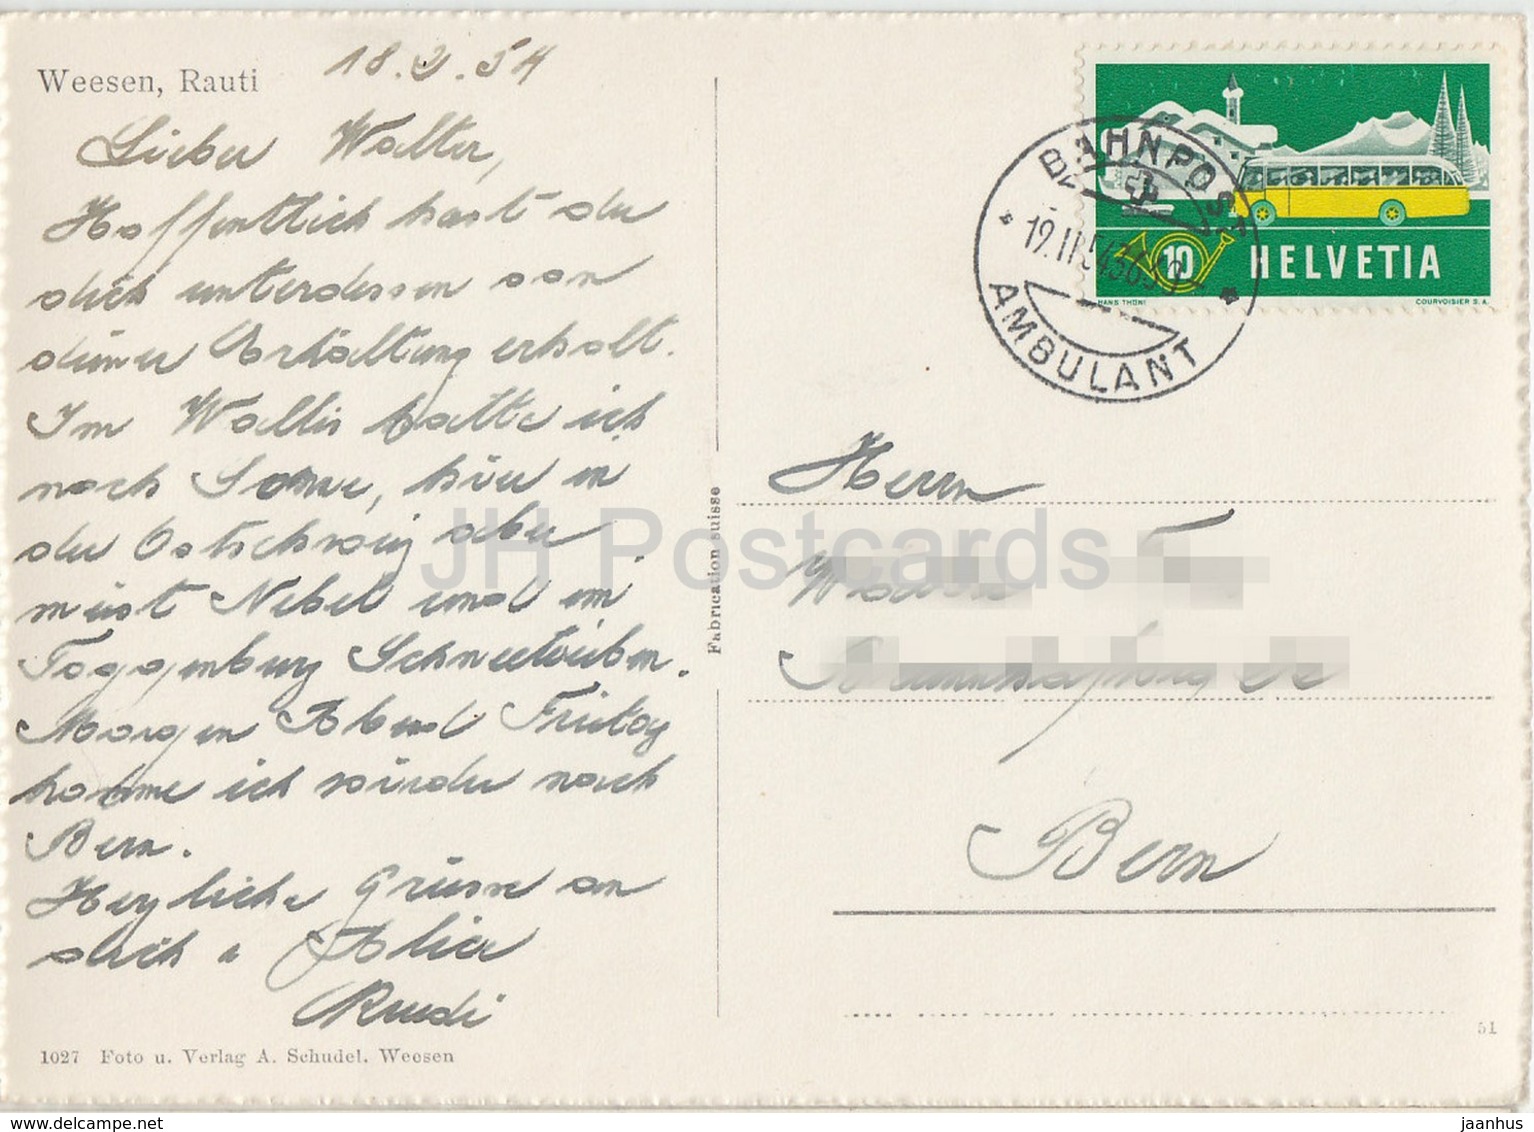 Weesen, Rauti
18.2.54
Lieber Walter,
Hoffentlich hast du
dich unterdessen von
deiner Erkältung erholt.
Im Wallis hatte ich
noch Sonne, hier in
der Ostschweiz aber
meist Nebel und im
Toggenburg Schneetreiben.
Morgen Abend Freitag
komme ich wieder nach
Bern.
Herzliche Grüsse an
dich u Alice
Ruedi
1027 Foto u. Verlag A. Schudel, Weesen
Fabrication suisse
BAHNPOST
19.II.54
AMBULANT
10 HELVETIA
HANS THÖNI COURVOISIER S.A.
Herrn
Bern
51
JH Postcards
delcampe.net
jaanhus